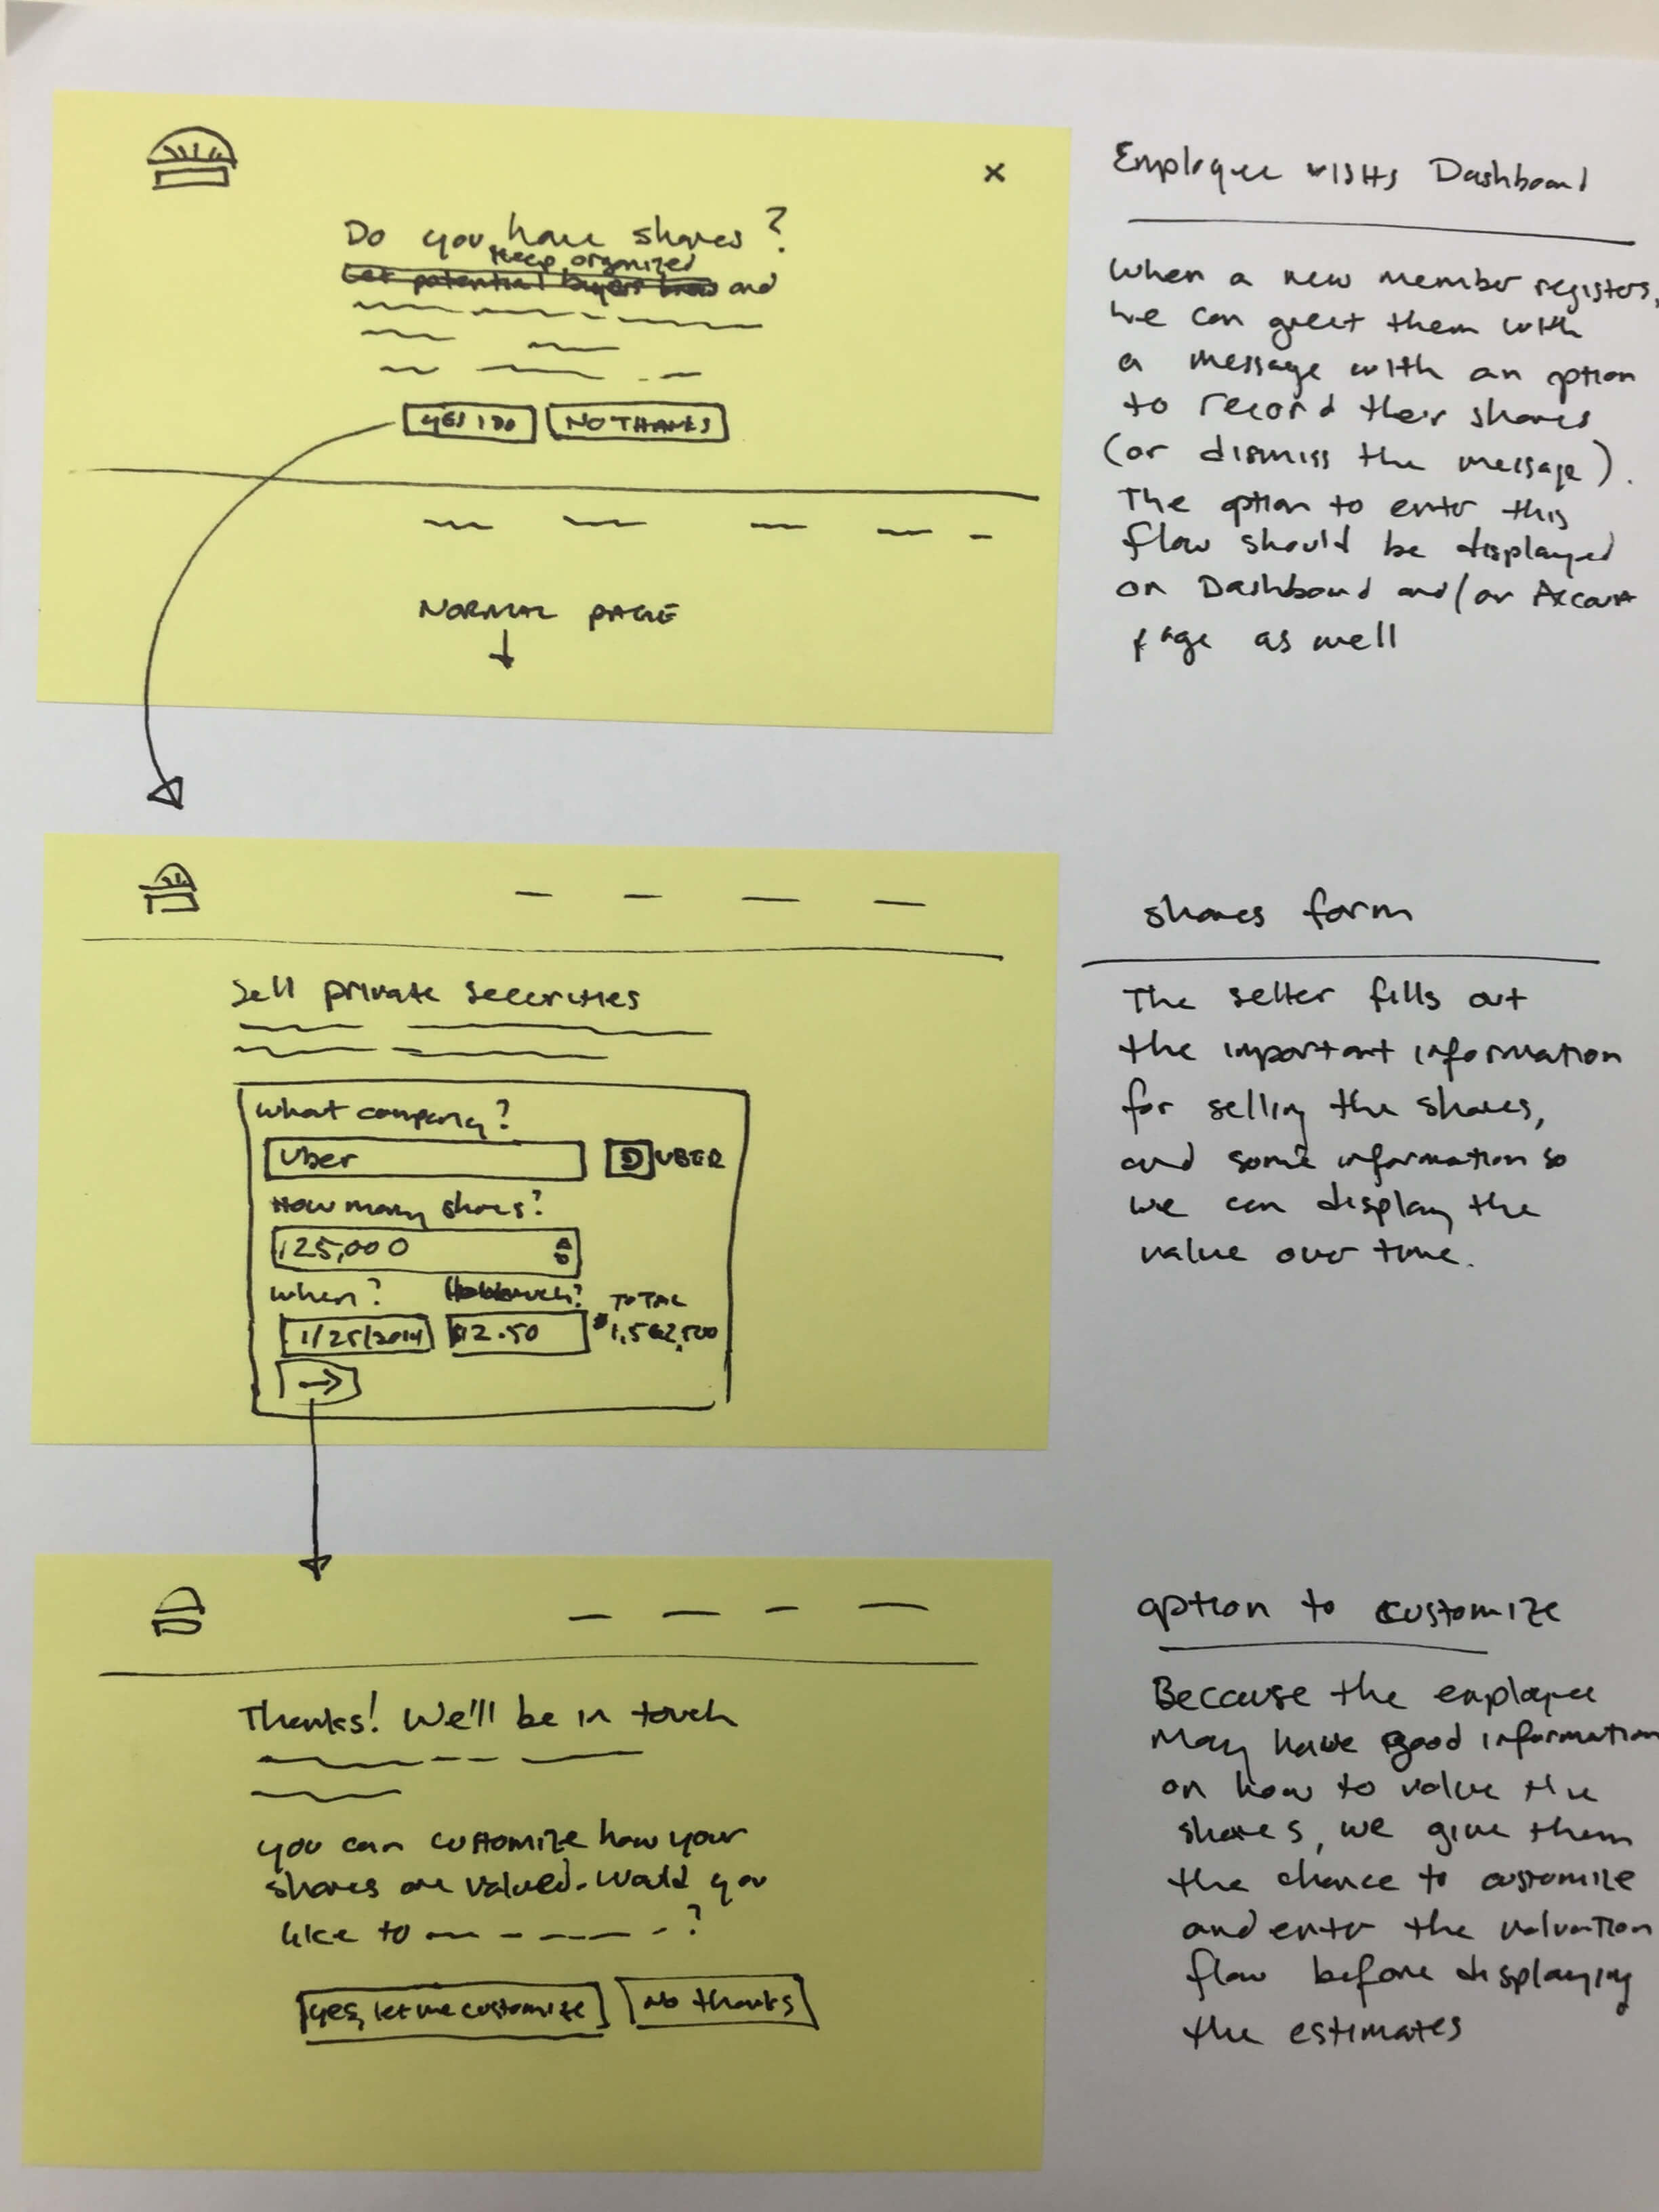 x
Do you have shares?
Keep organized
Let potential buyers know and
YES I DO
NO THANKS
NORMAL PAGE
Employee visits Dashboard
When a new member registers,
we can greet them with
a message with an option
to record their shares
(or dismiss the message).
The option to enter this
flow should be displayed
on Dashboard and/or Account
page as well
Sell private securities
What company?
Uber
UBER
How many shares?
125,000
When?
TOTAL
1/25/2014
$12.50
$1,562,500
shares form
The seller fills out
the important information
for selling the shares,
and some information so
we can display the
value over time.
Thanks! We'll be in touch
you can customize how your
shares are valued. Would you
like to ?
yes, let me customize
no thanks
option to customize
Because the employee
may have good information
on how to value the
shares, we give them
the chance to customize
and enter the valuation
flow before displaying
the estimates